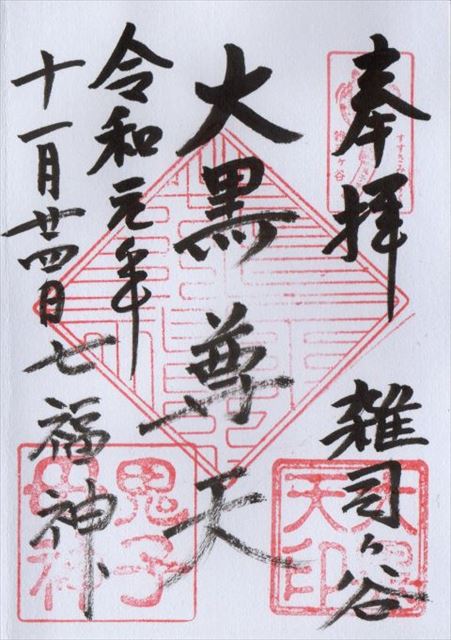 奉拝
雑司ヶ谷
大黒尊天
令和元年
十一月廿四日
七福神
すすきみ
ヶ谷
大黒
天印
鬼子
母神